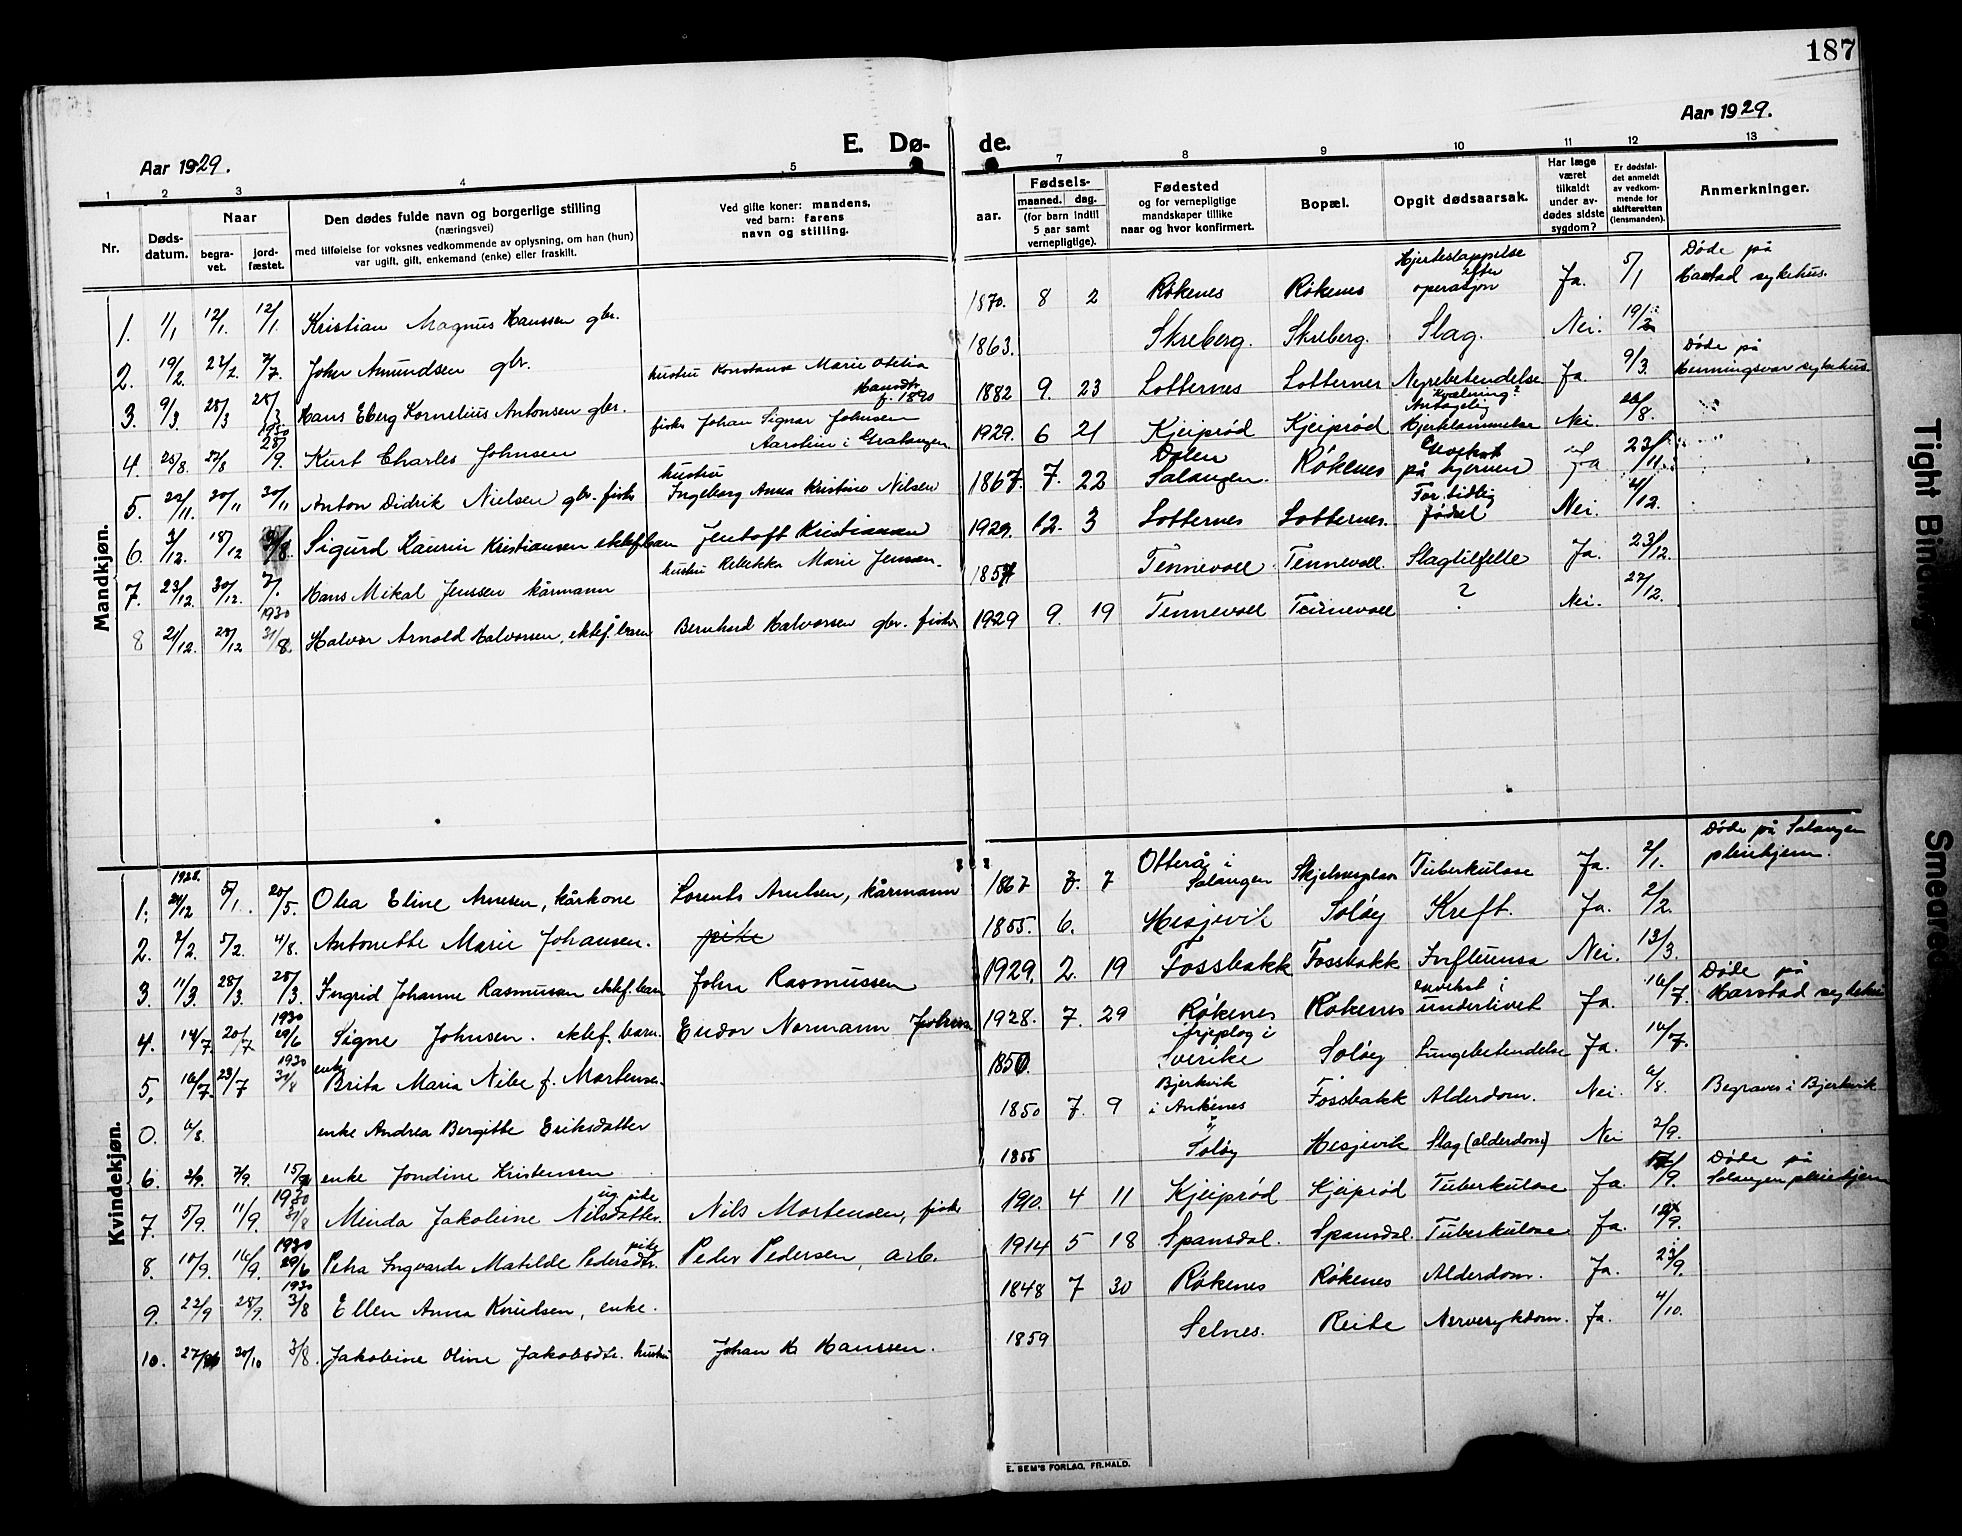 187
Aar 1929.
E. Dø-
de.
Aar 1929.
1 2 3 4 5 7 8 9 10 11 12 13
Nr.
Døds-
datum.
Naar
begra-
vet.
jord-
fæstet.
Den dødes fulde navn og borgerlige stilling
(næringsvei)
med tilføielse for voksnes vedkommende av oplysning, om han (hun)
var ugift, gift, enkemand (enke) eller fraskilt.
Ved gifte koner: mandens,
ved barn: farens
navn og stilling.
Fødsels-
aar.
maaned. dag.
(for barn indtil
5 aar samt
vernepligtige).
Fødested
og for vernepligtige
mandskaper tillike
naar og hvor konfirmert.
Bopæl.
Opgit dødsaarsak.
Har læge
været
tilkaldt
under av-
dødes sidste
sygdom?
Er dødsfal-
det anmeldt
av vedkom-
mende for
skifteretten
(lensmanden).
Anmerkninger.
Mandkjøn.
1. 1/1 12/1. 12/1. Kristian Magnus Hanssen gbr. 1870. 8 2 Røkenes Røkenes Hjerteslappelse efter operasjon Ja. 5/1 Døde på Harstad sykehus.
2. 19/2. 22/2. 7/7. Johan Amundsen gbr. 1863. Skreberg. Skreberg. Slag. Nei. 19/2
3. 9/3. 28/3 28/3 Hans Eberg Kornelius Antonsen gbr. hustru Konstanse Marie Otelia Hansdtr. f. 1890 1882 9. 23 Lotternes Lotternes Nyrebetendelse Ja. 9/3. Døde på Henningsvær sykehus.
4. 25/8. 1930 28/9. Kurt Charles Johnsen fisker Johan Signar Johnsen Aarstein i Gratangen 1929. 6 21 Kjeiprød Kjeiprød Kvælning? Antagelig Hjertelammelse Nei.
5. 22/11. 30/11 30/11 Anton Didrik Nielsen gbr. fisker hustru Ingeborg Anna Kristine Nilsen 1867. 7. 22 Dalen Salangen. Røkenes på hjernen Ja 23/11
6. 3/12. 18/12 Sigurd Kaurin Kristiansen ektef. barn Jentoft Kristiansen 1929. 12. 3 Lotternes Lotternes. For tidlig fødsel Nei. 4/12.
7. 23/12. 30/12. 7/1. Hans Mikal Jenssen kårmann hustru Rebekka Marie Jensen. Tennevoll Tennevoll. Slagtilfelle Ja. 23/12.
8 21/12. 28/12 1930 31/8. Halvor Arnold Halvorsen, ektef. barn Bernhard Halvorsen gbr. fisker 1929 9. 19 Tennevoll Tennevoll ? Nei. 27/12.
Kvindekjøn.
1. 1928. 24/12 5/1. 20/5. Olea Eline Arnesen, kårkone Lorents Arntsen, kårmann 1867 7. 7 Otterå i Salangen Tuberkulose Ja. 2/1. Døde på Salangen pleiehjem.
2. 2/2. 5/2. 4/8. Antonette Marie Johansen. pike 1855. 6. Hesjevik Soløy Kreft. Ja. 2/2.
3. 11/3. 28/3. 28/3. Ingrid Johanne Rasmussen ektef. barn John Rasmussen 1929. 2. 19 Fossbakk Fossbakk Influensa Nei. 13/3
4. 14/7. 20/7 1930 29/6 Signe Johnsen. ektef. barn. Endor Normann Johnsen 1928. 7. 29 Røkenes Røkenes underlivet Ja. 16/7 Døde på Harstad sykehus
5. 16/7. 23/7 1930 31/8 enke Brita Maria Nibe f. Mortensen 1850. Arjeplog i Sverike Soløy Lungebetendelse Ja. 16/7.
0. 6/8. enke Andrea Bergitte Eriksdatter 1850 7. 9 Bjerkvik i Ankenes Fossbakk Alderdom. Nei. 6/8. Begraves i Bjerkvik
6. 2/9. 7/9. enke Jondine Kristensen 1855 Soløy Hesjevik Slag (alderdom) Nei 2/9.
7 5/9. 11/9. 1930 31/8 Minda Jakobine Nilsdatter. ug. pike Nils Mortensen, fisker 1910. 4 11 Kjeiprød Kjeiprød Tuberkulose Ja. Døde på Salangen pleiehjem
8. 10/9. 16/9. 1930 29/6 Petra Ingvarda Matilde Pedersdtr. pike Peder Pedersen, arb. 1914 5 18 Spansdal. Spansdal. Tuberkulose Ja.
9. 22/9 28/9. 1930 3/8 Ellen Anna Knudsen, enke. 1848 7 30 Røkenes Røkenes Alderdom. Ja. 23/9.
10. 20/10 3/8. Jakobine Oline Jakobsdtr. hustru Johan H Hanssen. 1859 Selnes. Reite Nervesykdom. Ja. 4/10.
E. SEM'S FORLAG, FR.HALD.
Tight Binding
Smeared